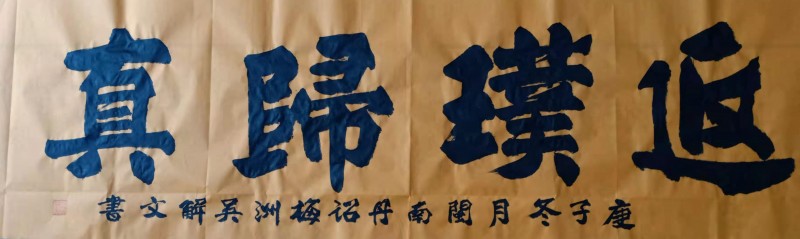 返璞歸真
庚子冬月閩南丹詔梅洲吳解文書